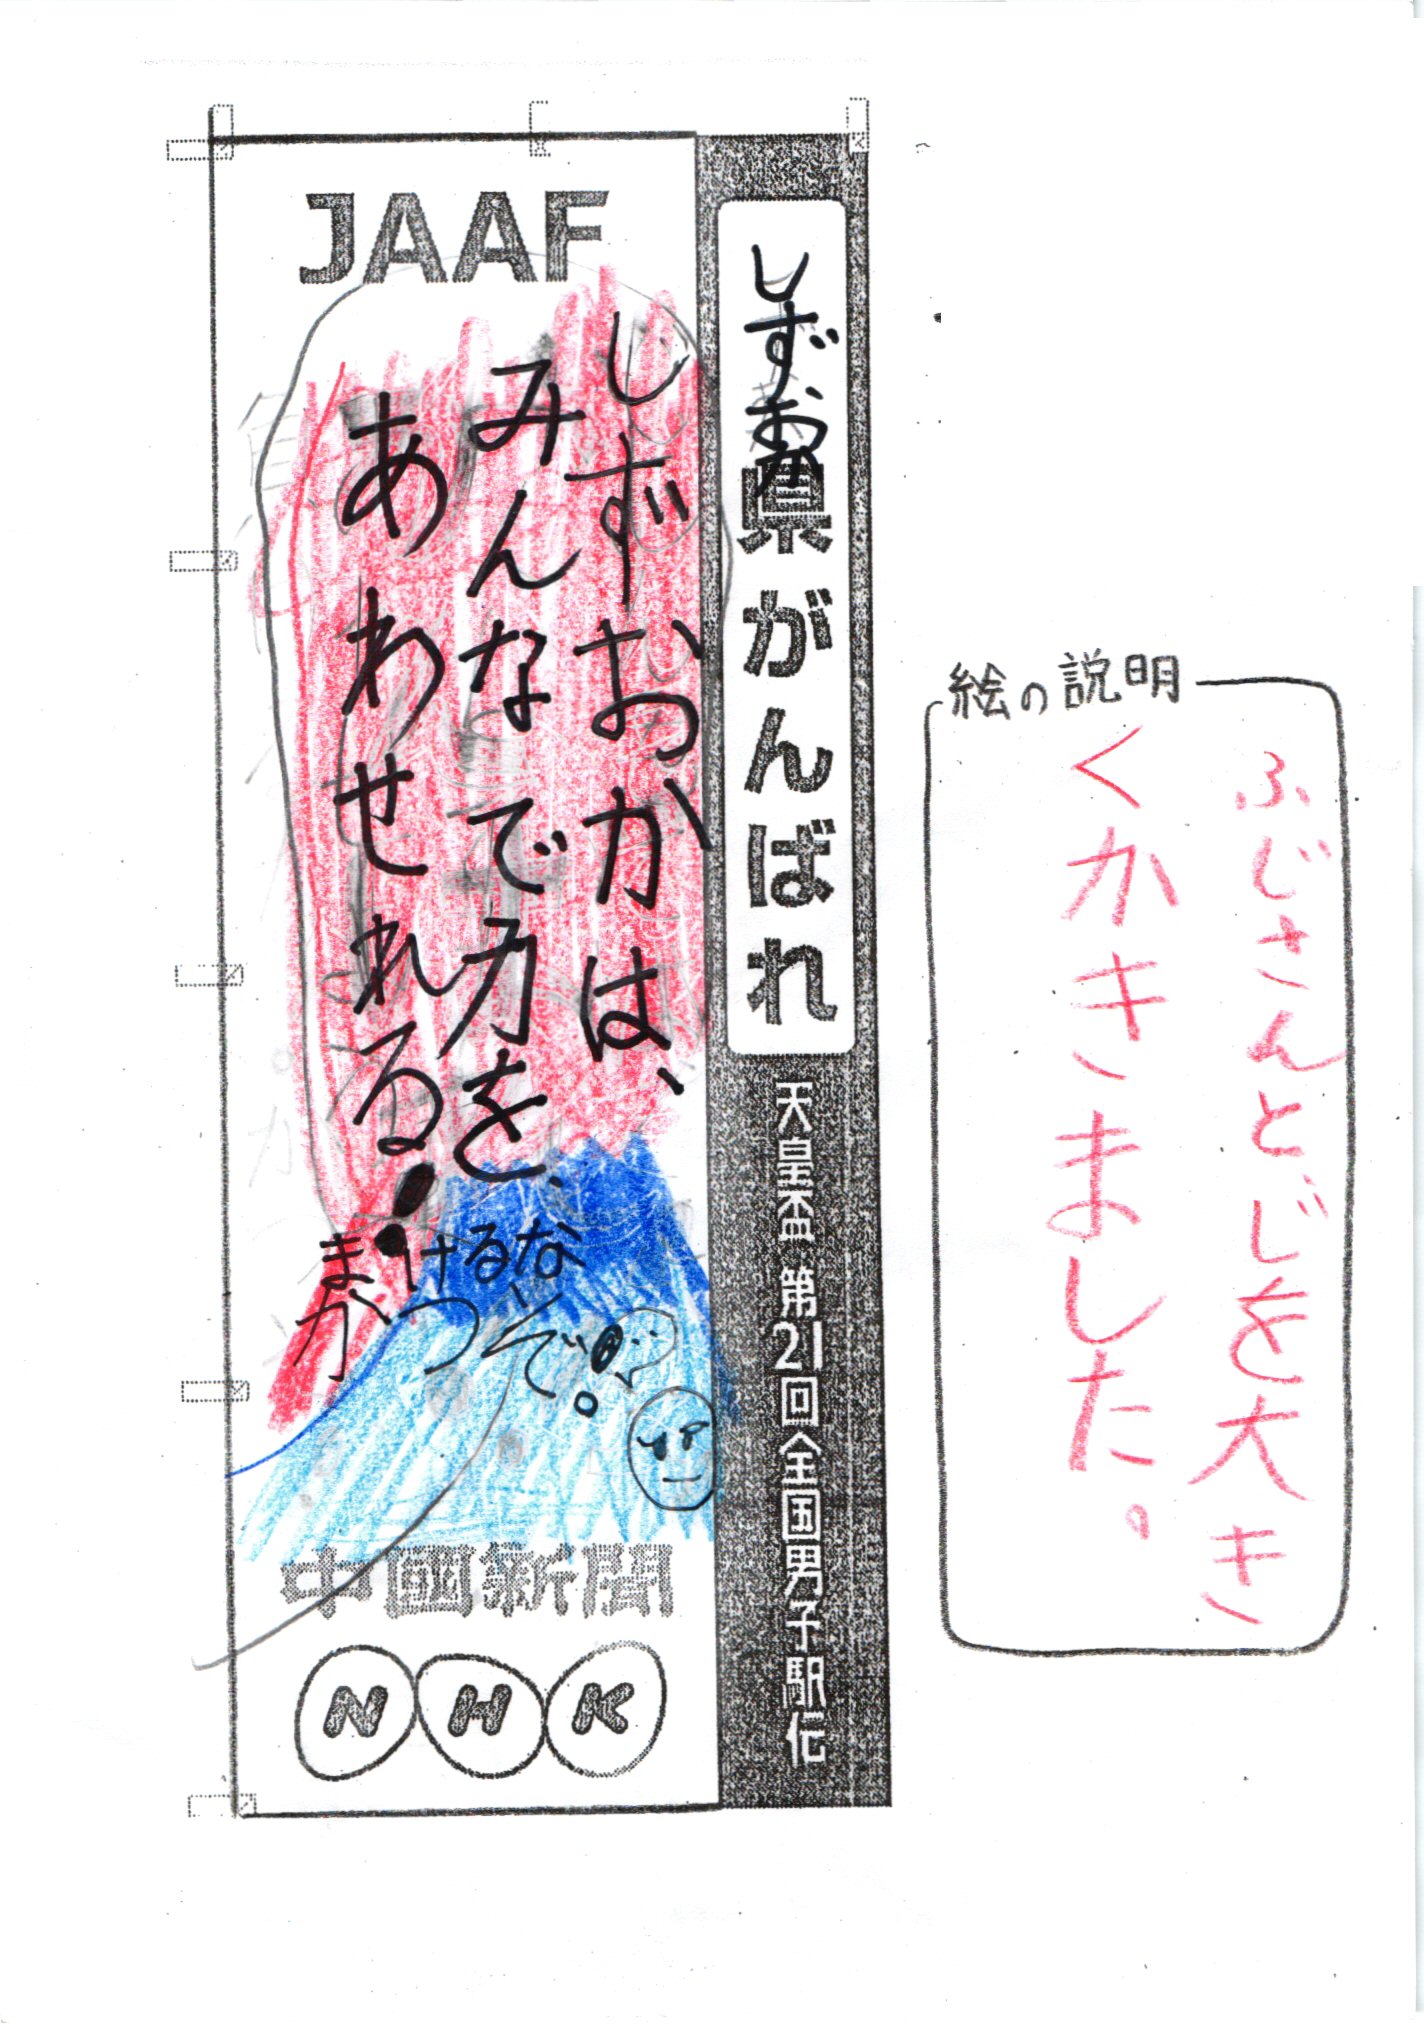 JAAF
しずおか県がんばれ
天皇盃 第21回全国男子駅伝
しずおかは、
みんなで力を、
あわせれる!
まけるな
かつぞ!。
中國新聞
NHK
絵の説明
ふじさんとじを大き
くかきました。